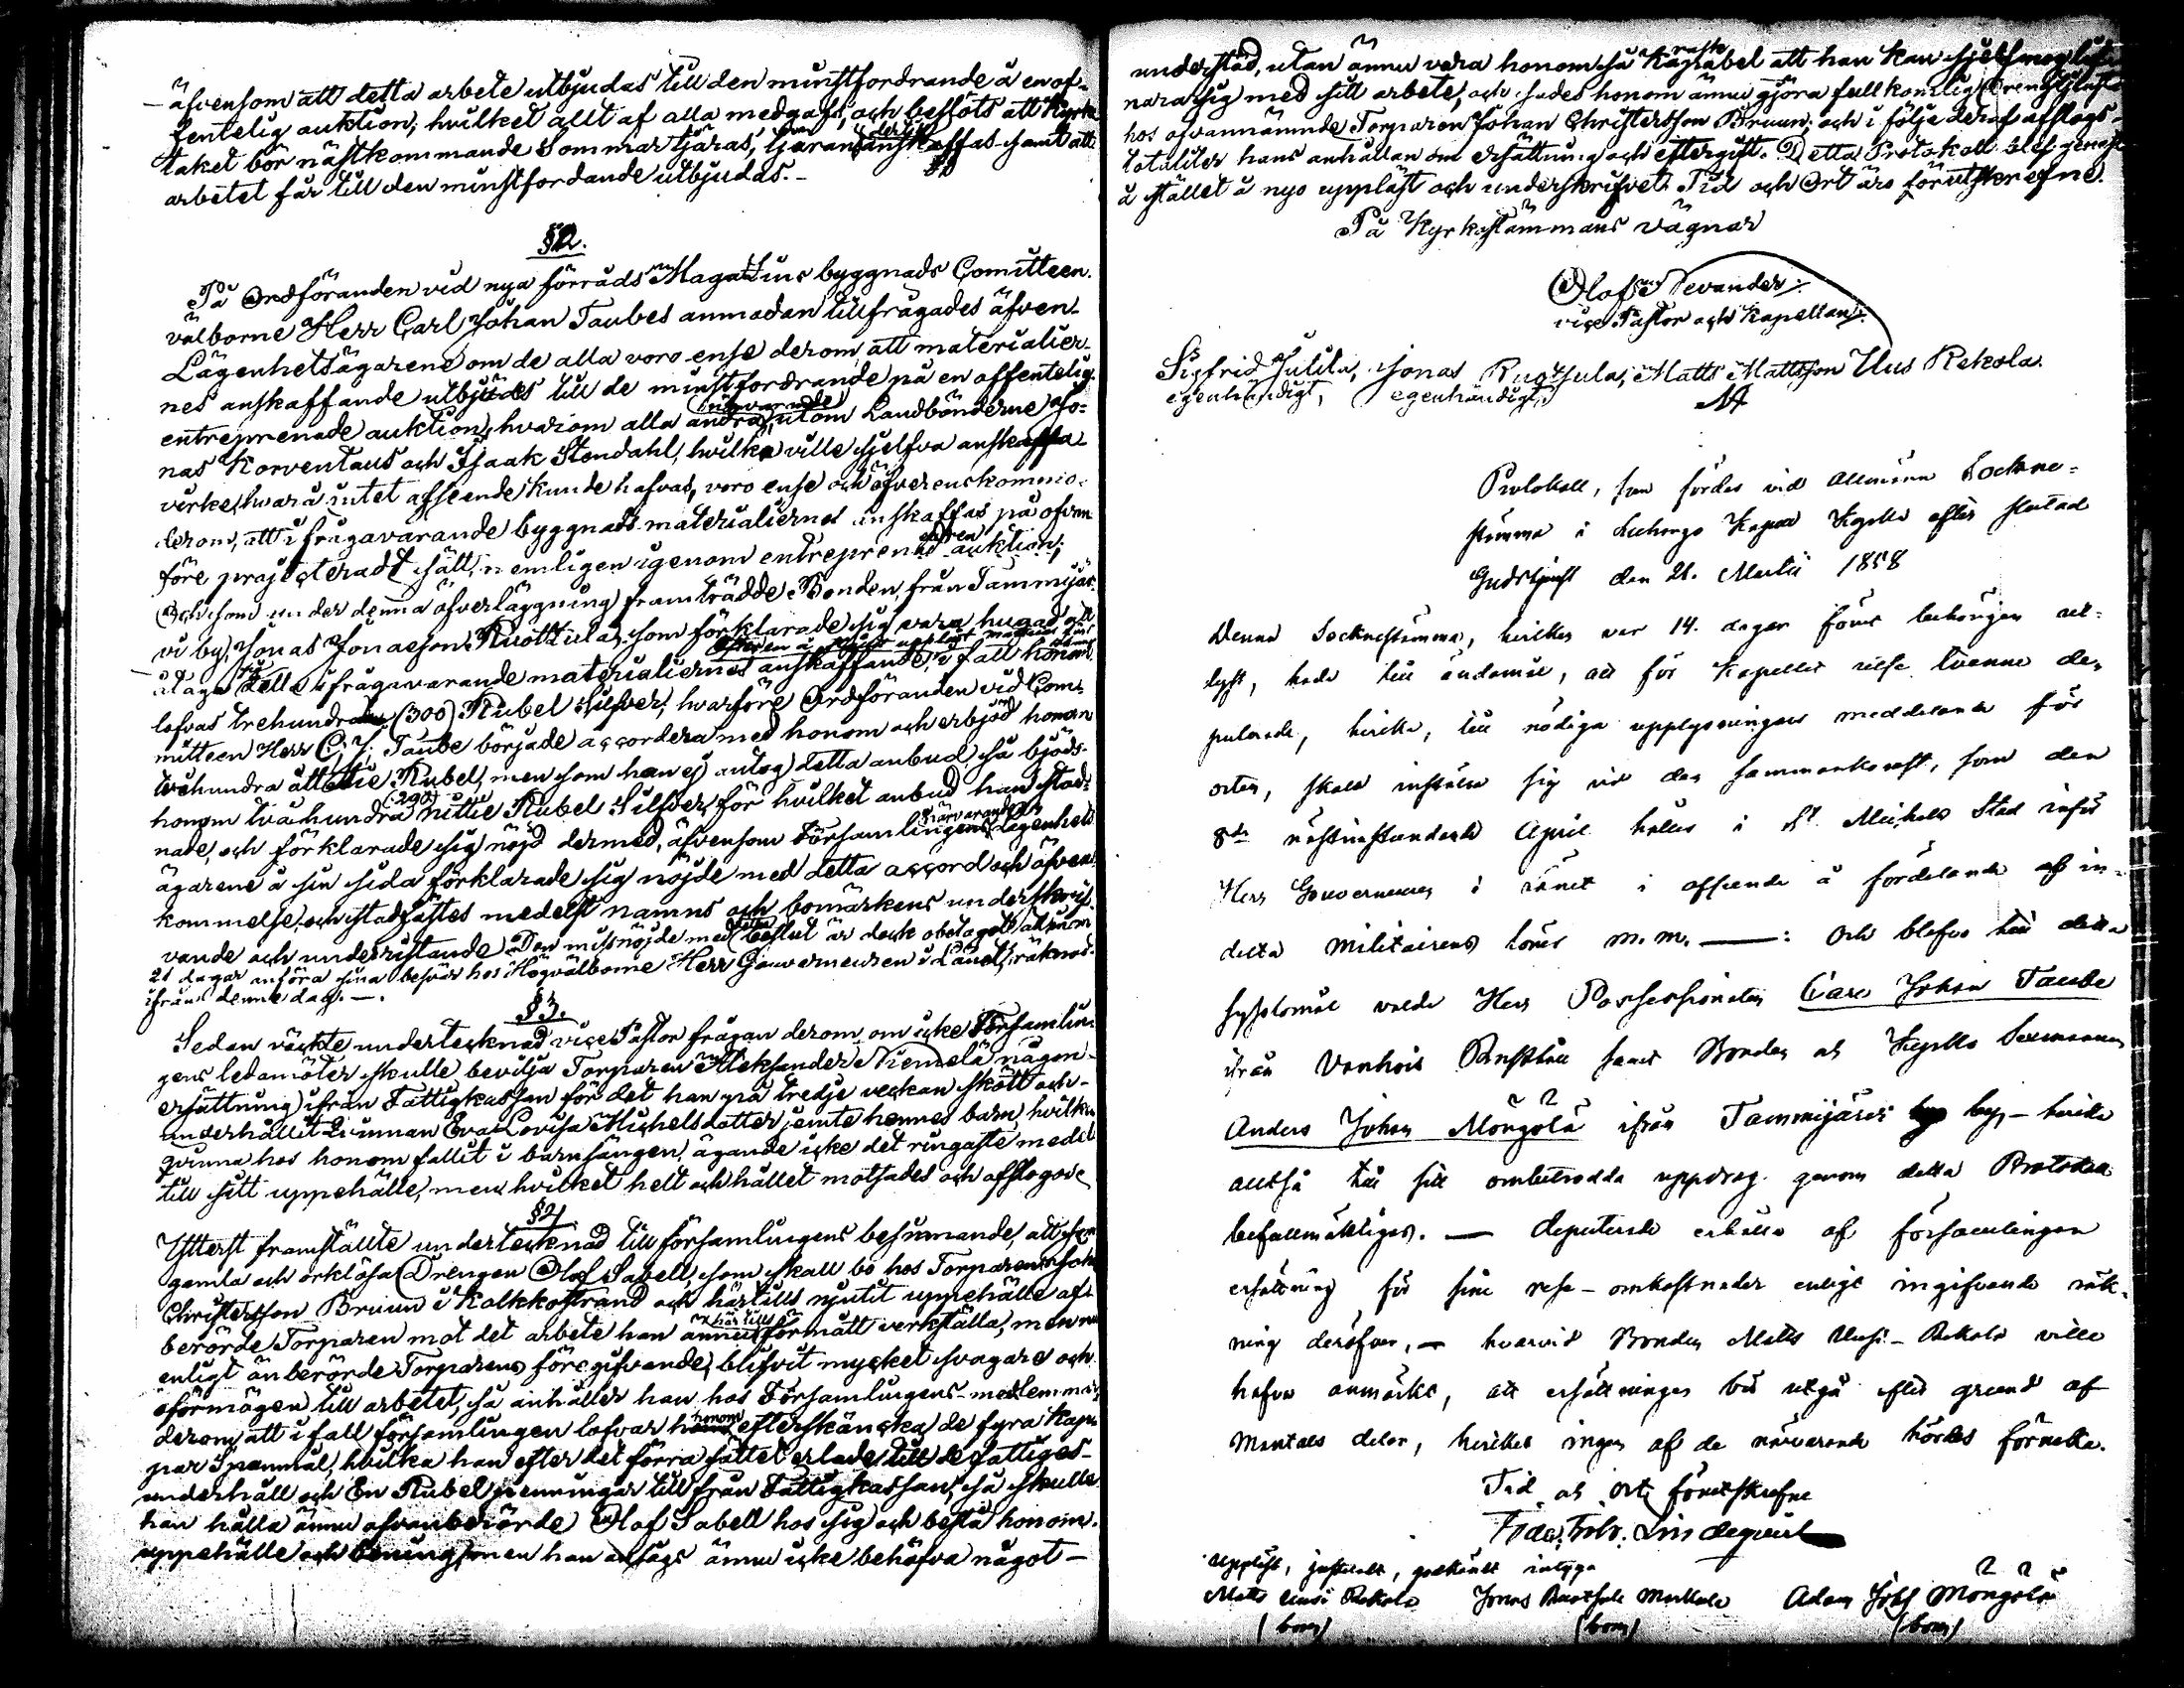 äfvensom att detta arbete utbjudas till den minstfordrande å en of-
fentelig auktion; hvilket allt af alla medgafs, och beslöts att Kyrko
taket bör nästkommande Sommar tjäras, tjäran anskaffas samt att
arbetet får till den minstfordande utbjudas.-
§2.
På Ordföranden vid nya förråds Magatzins byggnads Comitteen.
välborne Herr Carl Johan Taubes anmodan tillfrågades äfven-
Lägenhetsägarene om de alla voro ense derom att materialier-
nes anskaffande utbjudes till de minstfordrande på en offentelig
entreprenade auktion, hvarom alla andra (närvarande) utom Landbönderne Jo-
nas Korventaus och Isaak Stendahl, hvilka ville sjelfva anskaffa
virke, hvarå intet afseende kunde hafvas, voro ense och öfverenskommo.
derom, att ifrågavarande byggnads materialierna anskaffas på ofvan
före projecteradt sätt, nemligen igenom entreprenad auktion;
Och som under denna öfverläggning framträdde Bonden från Tammijär-
vi by, Jonas Jonasson Ruottula, som förklarade sig vara hugad att
åtaga sig detta ifrågavarande materialiernes anskaffande, i fall honom
lofvas trehundra (300) Rubel Silfver; hvarföre Ordföranden vid Com-
mitteen Herr C. J. Taube började accordera med honom och erbjöd honom
tvåhundra åttatie Rubel, men som han ej antog detta anbud, så bjöds
honom tvåhundra (290) nittie Rubel Silfver, för hvilket anbud han stad-
nade, och förklarade sig nöjd dermed, äfvensom Församlingens närvarande Lägenhets
ägarene å sin sida förklarade sig nöjde med detta accord och öfverens-
kommelse, och stadfästes medelst namns och bomärkens underskrif-
vande och underristande. Den missnöjde med detta beslut är dock obetaget att inom
21 dagar anföra sina besvär hos Högvälborne Herr Gouverneuren i Länet, räknad
ifrån denne dag. —.
§3.
Sedan väckte undertecknad vice Pastor frågan derom, om icke Församlin-
gens ledamöter skulle bevilja Torparen Aleksander Niemelä någon
ersättning ifrån Fattigkassan för det han på tredje veckan skött och-
underhållit Qvinnan Eva Lovisa Michelsdotter jemte hennes barn, hvilken
qvinna hos honom fallit i barnsängen, ägande icke det ringaste medel
till sitt uppehälle, men hvilket helt och hållet motsades och afslogs.
§4
Ytterst framställte undertecknad till församlingens besinnande, att som
gamla och orklösa Drengen Olof Sabell, som skall bo hos Torparen Johan
Christersson Bruun i Kalkkostrand och härtills njutit uppehälle af
berörde Torparen mot det arbete han härtills förmått verkställa, men nu
enligt änberörde Torparens föregifvande, blifvit mycket svagare och
oförmögen till arbetet, så anhåller han hos Församlingens-medlemmar,
derom att i fall församlingen lofvar honom efterskäncka de fyra Kap-
par Spanmål, hvilka han efter det förra sättet erlade till de fattiges-
underhåll och En Rubel penningar till från Fattigkassan, så skulle
han hålla ännu ofvanberörde Olof Sabell hos sig och bestå honom.
uppehälle och boning, men han ansågs ännu icke behöfva något —
understöd, utan ännu vara honom så kapabel att han kan sjelf
nara sig med sitt arbete, och sades honom ännu gjöra fullkomlig Drengtjenst
hos ofvannämnde Torparen Johan Christersson Bruun; och i följe deraf afslogs-
totaliter hans anhållan om ersättning och eftergift. Detta Protokoll blef genast
å stället å nyo uppläst och underskrifvet. Tid och Ort äro förutskrefne.
På Kyrkostämmans vägnar
Olof Levander
vice Pastor och Kapellan.
Sigfrid Julila, Jonas Ruottula, Matts Mattsson Uus Rekola.
egenhändigt, egenhändigt,
Protokoll, som fördes vid allmänna Sockne-
stämma i Luhango Kapell Kyrka efter slutad
Gudstjenst den 21. Martii 1858
Denna Socknestämma, hvilken var 14. dagar förut behörigen ut-
lyst, hade till ändamål, att för Kapellet välja tvenne de-
puterade, hvilka, till nödiga upplysningars meddelande för
orten, skola infinna sig vid den sammankomst, som den
8de nästinstundande April hålles i St. Michels Stad inför
Herr Gouverneuren i länet i afseende å fördelande af in-
delta militairens m. m. —: Och blefvo till detta
syftemål valde Herr Possessionaten Carl Johan Taube
ifrån Vanhois Rusthåll samt Bonden och Kyrko Sexmannen
Anders Johan Mongola ifrån Tammijärvi by, — hvilka
alltså till sitt ombetrodda uppdrag genom detta Protokoll
befullmäktigas. — Deputerade erhålla af församlingen
ersättning för sine rese-omkostnader enligt ingifvande räk-
ning deröfver, — hvarvid Bonden Matts Uusi-Rekola ville
hafva anmärkt, att ersättningen bör utgå efter grund af
Mantals delar, hvilket ingen af de närvarande hördes förneka.
Tid och ort förutskrefne
Lindequist
Uppläst, justeradt, godkändt intyga
Matts Uusi Rekola Jonas Ruottula Adam Joh Mongola
(bom) (bom) (bom)